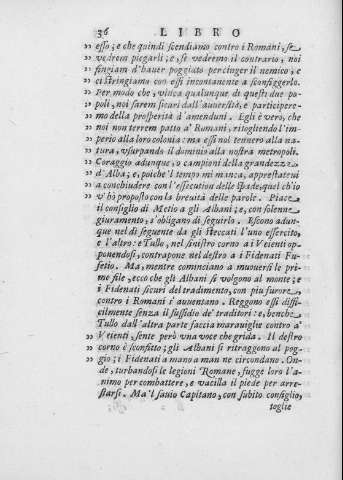 36 LIBRO
„ esso; e che quindi scendiamo contro i Romani, se
„ vedrem piegarli; e, se vedremo il contrario, noi
„ fingiam d'hauer poggiato per cinger il nemico, e
„ ci stringiamo con essi incontanente a sconfiggerlo.
„ Per modo che, vinca qualunque di questi due po-
„ poli, noi sarem sicuri dall'auuersità, e participere-
„ mo della prosperità d'amenduni. Egli è vero, che
„ noi non terrem patto a' Romani, ritogliendo l'im-
„ perio alla loro colonia: ma essi nol tennero alla na-
„ tura, vsurpando il dominio alla nostra metropoli.
„ Coraggio adunque, o campioni della grandezza
„ d'Alba; e, poiche'l tempo mi manca, apprestateui
„ a conchiudere con l'essecution delle spade, quel ch'io
„ v'hò proposto con la breuità delle parole. Piace
il consiglio di Metio a gli Albani; e, con solenne
giuramento, s'obligano di seguirlo. Escono adun-
que nel dì seguente da gli steccati l'uno essercito,
e l'altro: e Tullo, nel sinistro corno a i Veienti op-
ponendosi, contrapone nel destro a i Fidenati Fu-
fetio. Ma, mentre cominciano a muouersi le pri-
me file, ecco che gli Albani si volgono al monte; e
i Fidenati sicuri del tradimento, con piu furore
contro i Romani s'auuentano. Reggono essi diffi-
cilmente senza il sussidio de' traditori: e, benche
Tullo dall'altra parte faccia marauiglie contro a'
Veienti, sente però vna voce che grida. Il destro
corno è sconfitto; gli Albani si ritraggono al pog-
gio; i Fidenati a mano a man ne circondano. On-
de, turbandosi le legioni Romane, fugge loro l'a-
nimo per combattere, e vacilla il piede per arre-
starsi. Ma'l sauio Capitano, con subito consiglio,
toglie